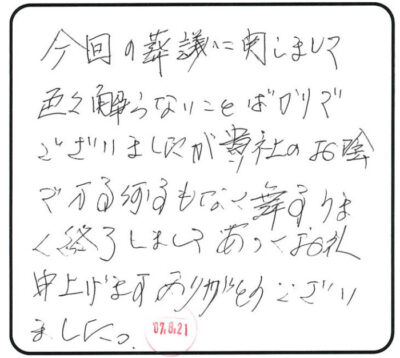 今回の葬議に関しまして
色々解らないことばかりで
ございましたが貴社のお陰
で
なく無事
く終了しましてあつくお礼
申上げますありがとうござい
ました。
07.8.21